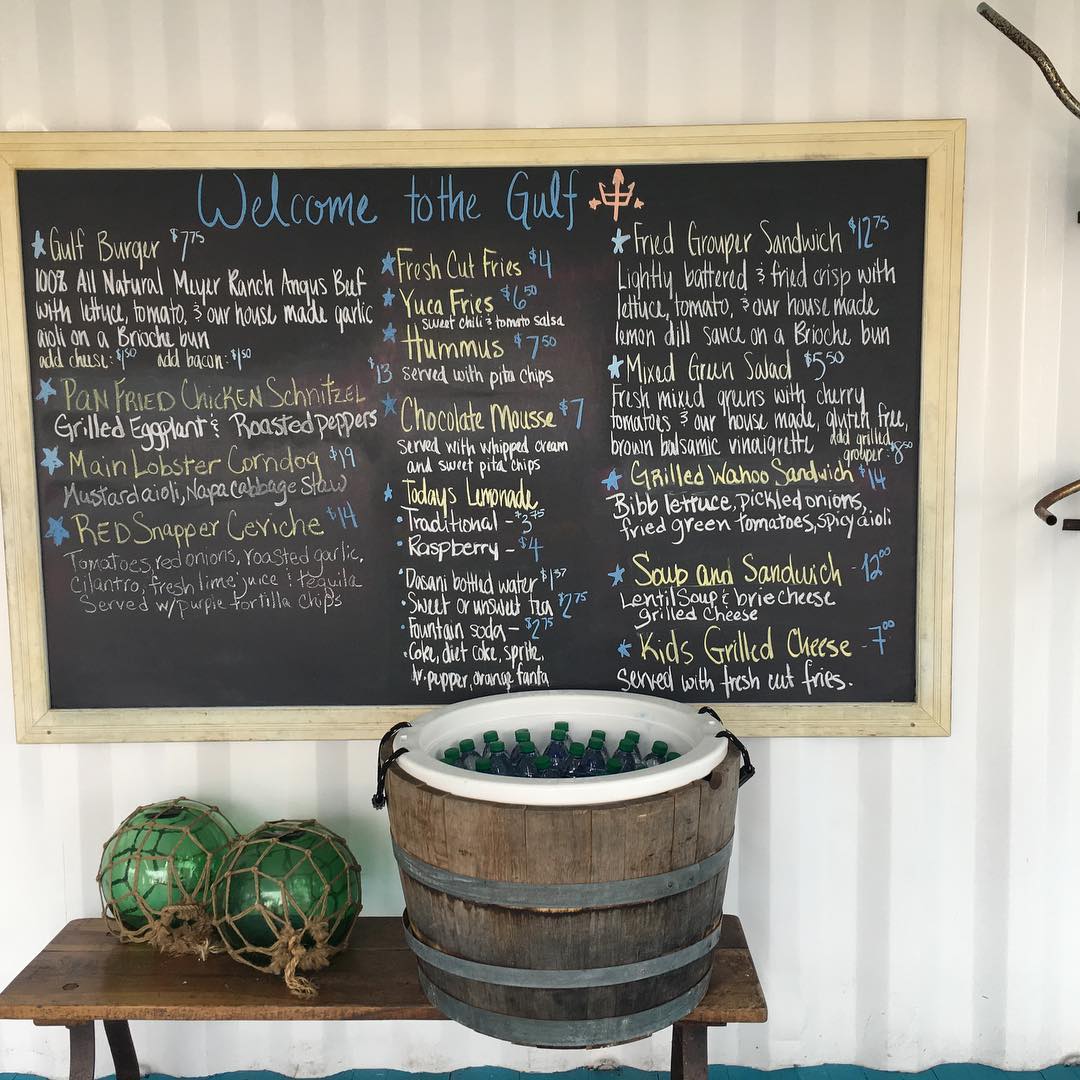 Welcome to the Gulf
Gulf Burger $7.75
100% All Natural Meyer Ranch Angus Beef
with lettuce, tomato, & our house made garlic
aioli on a Brioche bun
add cheese: $1.50 add bacon: $1.50
Pan Fried Chicken Schnitzel $13
Grilled Eggplant & Roasted Peppers
Main Lobster Corndog $19
Mustard aioli, Napa Cabbage Slaw
Red Snapper Ceviche $14
Tomatoes, red onions, roasted garlic,
Cilantro, fresh lime juice & tequila
Served w/purple tortilla chips
Fresh Cut Fries $4
Yuca Fries $6.50
sweet chili & tomato salsa
Hummus $7.50
served with pita chips
Chocolate Mousse $7
served with whipped cream
and sweet pita chips
Todays Lemonade
Traditional - $3.75
Raspberry - $4
Dasani bottled water $1.37
Sweet or unsweet tea $2.75
Fountain soda - $2.75
Coke, diet coke, sprite,
dr. pepper, orange fanta
Fried Grouper Sandwich $12.75
Lightly battered & fried crisp with
lettuce, tomato, & our house made
lemon dill sauce on a Brioche bun
Mixed Green Salad $5.50
Fresh mixed greens with cherry
tomatoes & our house made, gluten free,
brown balsamic vinaigrette add grilled
grouper: $8.50
Grilled Wahoo Sandwich $14
Bibb lettuce, pickled onions,
fried green tomatoes, spicy aioli
Soup and Sandwich - 12.00
Lentil Soup & brie cheese
grilled cheese
Kids Grilled Cheese - 7.00
Served with fresh cut fries.